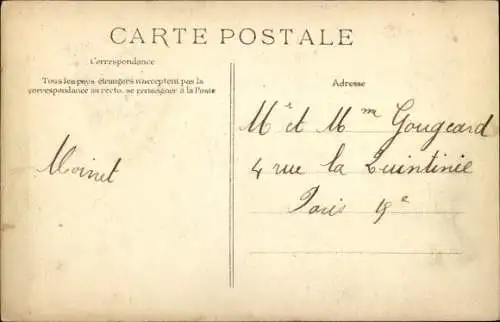 CARTE POSTALE
Correspondance
Tous les pays étrangers n'acceptent pas la
correspondance au recto. se renseigner à la Poste
Adresse
Moinet
Mr et Mm Gougeard
4 rue la Quintinie
Paris 15e